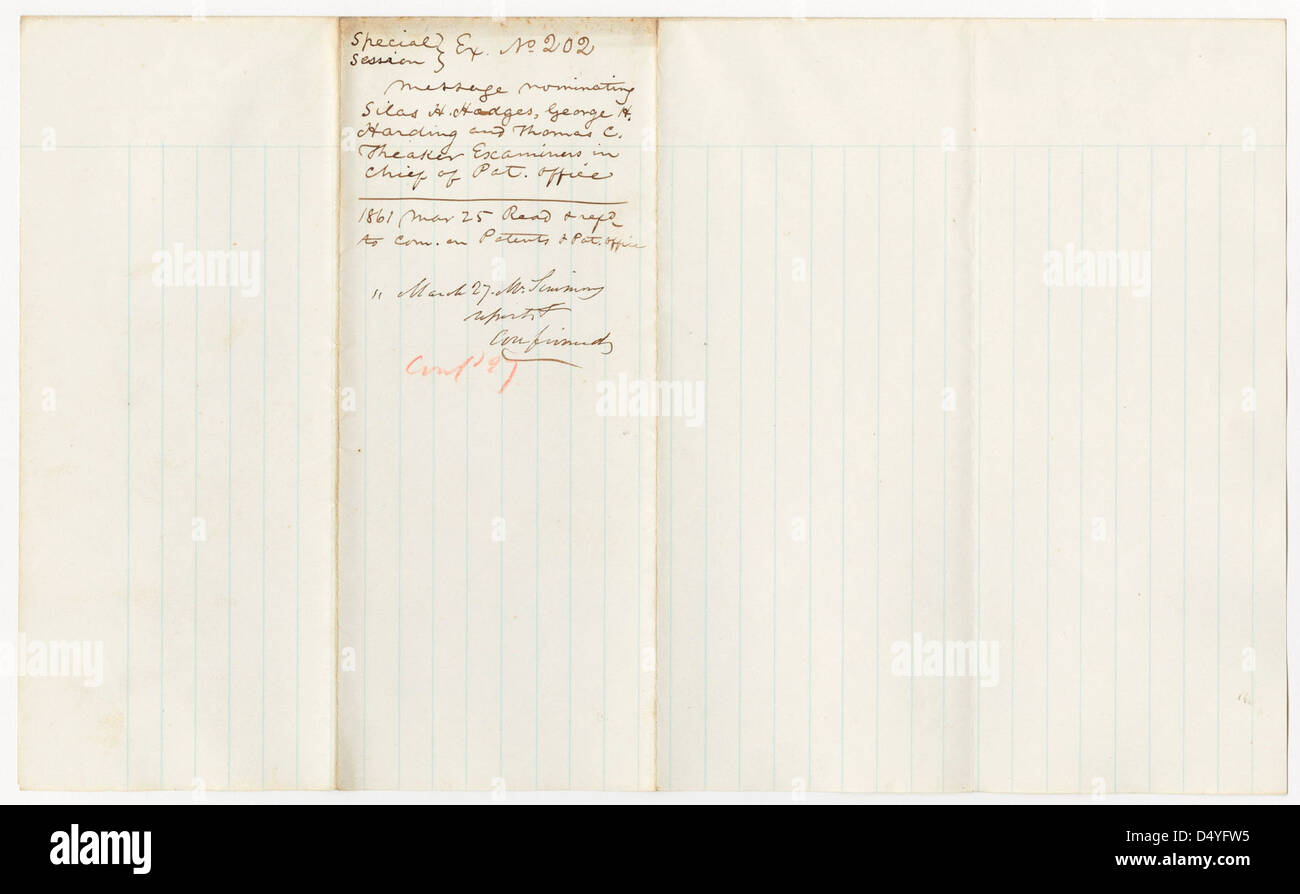 Special } Ex. No 202
Session }
Message nominating
Silas H. Hodges, George H.
Harding and Thomas C.
Theaker Examiners in
Chief of Pat. Office
1861 Mar 25 Read & refd
to Com. on Patents & Pat. Office
" March 27. Mr. Simmons
reports
Confirmed
Conf'd 27
alamy
alamy
alamy
alamy
alamy
alamy
Image ID: D4YFW5
www.alamy.com